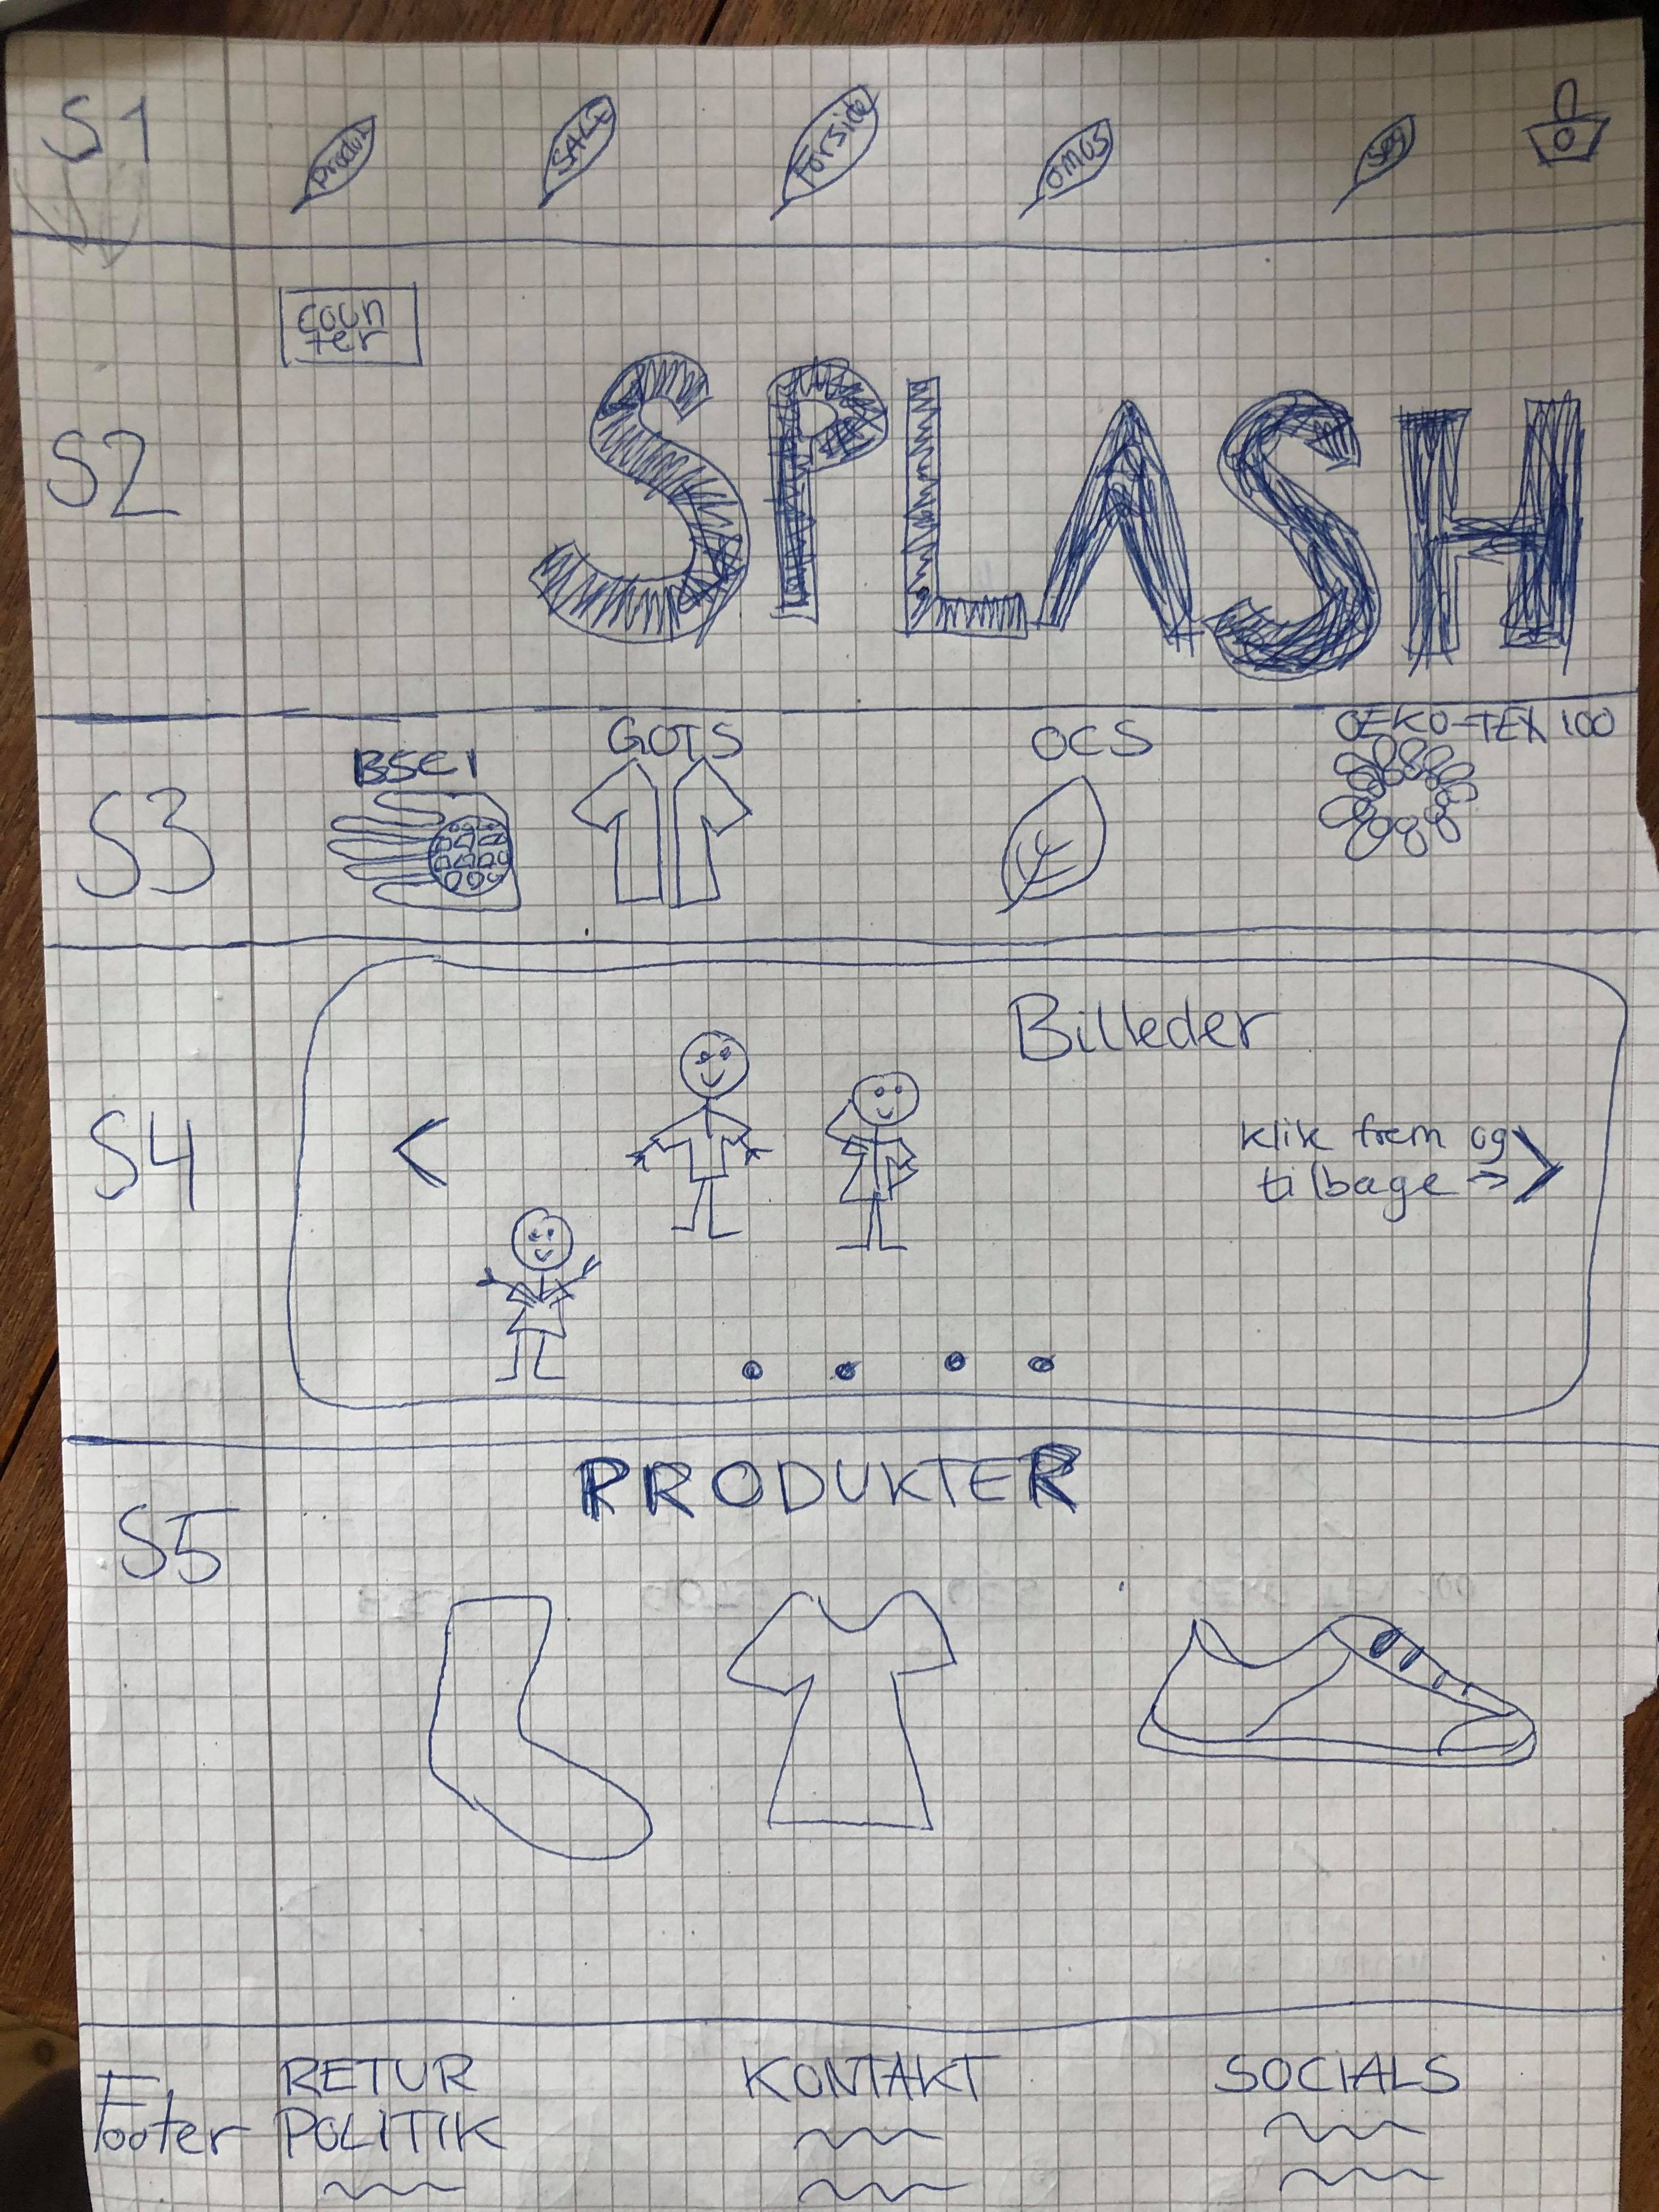 S1
Produkt
SALE
Forside
OMOS
Søg
S2
coun
ter
SPLASH
S3
BSCI
GOTS
OCS
OEKO-TEX 100
S4
Billeder
<
klik frem og
tilbage → >
S5
PRODUKTER
Footer
RETUR
POLITIK
KONTAKT
SOCIALS